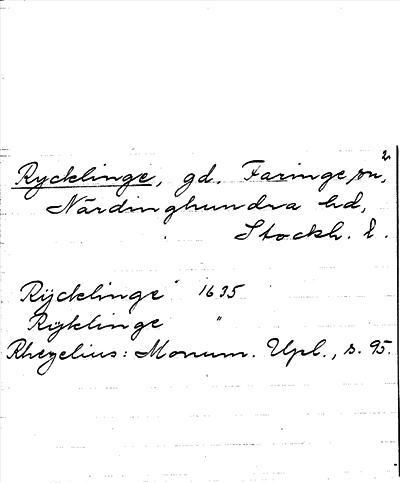 Rycklinge, gd. Faringe sn²,
Närdinghundra hd,
Stockh. l.
Rÿcklinge 1635
Rÿklinge "
Rhezelius: Monum. Upl., s. 95.